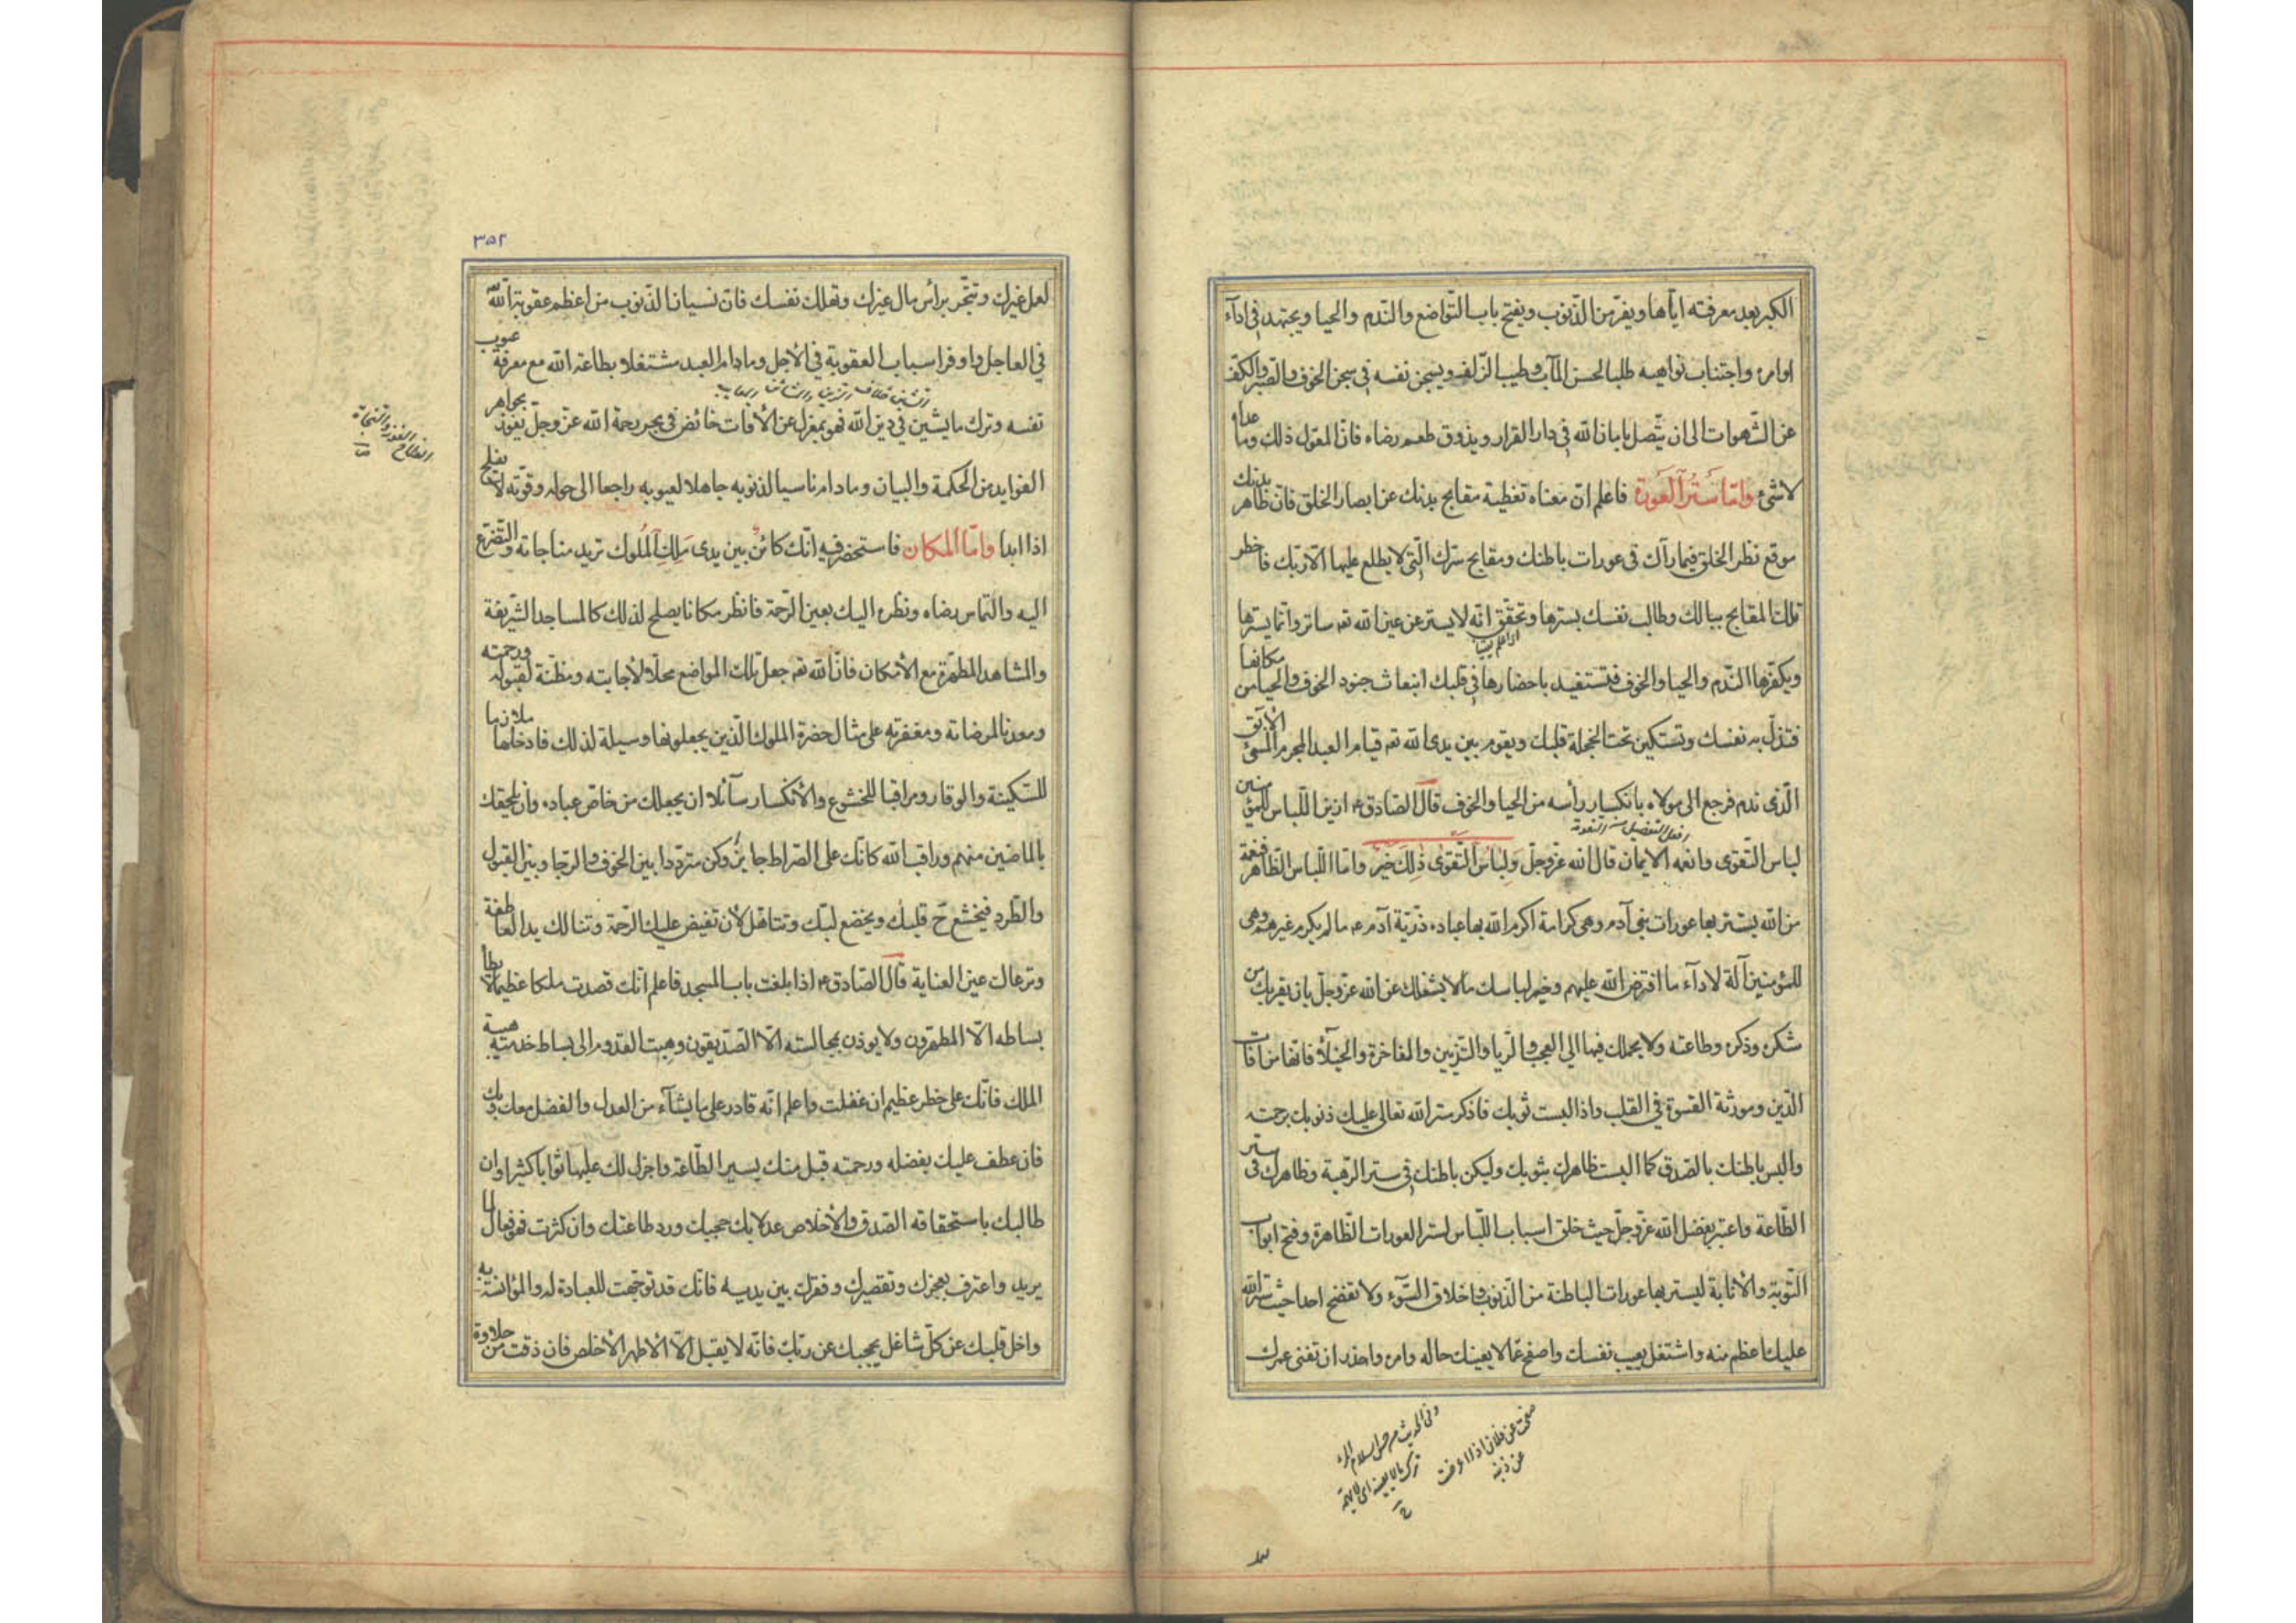 الكبر بعد معرفته اياها ويفر من الذنوب ويفتح باب التواضع والندم والحيا ويجتهد في اداء
اوامره واجتناب نواهيه طلبا لحسن المآب وطيب الزلف ويسجن نفسه في سجن الخوف والصبر والكف
عن الشهوات الى ان يتصل بامان الله في دار القرار ويذوق طعم رضاه فان المعول ذلك وما عداه
لا شئ واما ستر العورة فاعلم ان معناه تغطية مقابح بدنك عن ابصار الخلق فان ظاهر بدنك
موقع نظر الخلق فما رآك في عورات باطنك ومقابح سرك التي لا يطلع عليها الا ربك فاخطر
تلك المقابح ببالك وطالب نفسك بسترها وتحقق انه لا يستر عن عين الله تعه ساتر وانما يسترها
ويكفرها الندم والحيا والخوف فتستفيد باحضارها في قلبك انبعاث جنود الخوف والحيا من مكانها
فتذل به نفسك وتستكين تحت الخجلة قلبك ويقوم بين يدى الله تعه قيام العبد المجرم المسئ الآبق
الذى ندم فرجع الى مولاه بانكسار رأسه من الحيا والخوف قال الصادق ع ازين اللباس للمؤمنين
افعل التفضيل من النعومة
لباس التقوى وانعمه الايمان قال الله عز وجل ولباس التقوى ذلك خير واما اللباس الظاهر فنعمة
من الله يستتر بها عورات بني آدم وهى كرامة اكرم الله بها عباده ذرية آدم ع ما لم يكرم غيرهم وهى
للمؤمنين آلة لاداء ما افترض الله عليهم وخير لباسك ما لا يشغلك عن الله عز وجل بل يقربك من
شكره وذكره وطاعته ولا يحملك فيها الى العجب والريا والتزيين والمفاخرة والخيلاء فانها من آفات
الدين ومورثة القسوة في القلب واذا لبست ثوبك فاذكر ستر الله تعالى عليك ذنوبك برحمته
والبس باطنك بالصدق كما البست ظاهرك بثوبك وليكن باطنك في ستر الرهبة وظاهرك في ستر
الطاعة واعتبر بفضل الله عز وجل حيث خلق اسباب اللباس لستر العورات الظاهرة وفتح ابواب
التوبة والانابة ليستر بها عورات الباطنة من الذنوب واخلاق السوء ولا تفضح احدا حيث ستر الله
عليك اعظم منه واشتغل بعيب نفسك واصفح عما لا يعينك حاله وامره واحذر ان تفنى عمرك
صفحت عن فلان اذا اعرضت
عن ذنبه
وفى الحديث من حسن اسلام المرء
تركه ما لا يعينه اى لا يهمه
٣٥٢
لعمل غيرك وتتجر برأس مال غيرك وتهلك نفسك فان نسيان الذنوب من اعظم عقوبة الله
في العاجل واوفر اسباب العقوبة في الاجل وما دام العبد مشتغلا بطاعة الله مع معرفة عيوب
نفسه وترك ما يشين في دين الله فهو بمعزل عن الافات خائض في بحر رحمة الله عز وجل يفوز بجواهر
الفوايد من الحكمة والبيان وما دام ناسيا لذنوبه جاهلا لعيوبه راجعا الى حوله وقوته لا يفلح
الفلاح الفوز والنجاة
اذا ابدا واما المكان فاستحضر فيه انك كائن بين يدى ملك الملوك تريد مناجاته والتضرع
اليه والتماس رضاه ونظره اليك بعين الرحمة فانظر مكانا يصلح لذلك كالمساجد الشريفة
والمشاهد المطهرة مع الامكان فان الله تعه جعل تلك المواضع محلا لاجابته ومظنة لقبوله ورحمته
ومعدنا لمرضاته ومغفرته على مثال حضرة الملوك الذين يجعلونها وسيلة لذلك فادخلها ملازما
للسكينة والوقار ومراقبا للخشوع والانكسار سآئلا ان يجعلك من خاص عباده وان يلحقك
بالماضين منهم وراقب الله كانك على الصراط جايز وكن مترددا بين الخوف والرجا وبين القبول
والطرد فيخشع ح قلبك ويخضع لبك وتتاهل لان تفيض عليك الرحمة وتنالك يد العاطفة
وترعاك عين العناية قال الصادق ع اذا بلغت باب المسجد فاعلم انك قصدت ملكا عظيما لا يطأ
بساطه الا المطهرون ولا يوذن بمجالسته الا الصديقون وهب القدوم الى بساط خدمته هيبة
الملك فانك على خطر عظيم ان غفلت واعلم انه قادر على ما يشآء من العدل والفضل معك وبك
فان عطف عليك بفضله ورحمته قبل منك يسير الطاعة واجزل لك عليها ثوابا كثيرا وان
طالبك باستحقاقه الصدق والاخلاص عدلا بك حجبك ورد طاعتك وان كثرت فهو فعال لما
يريد واعترف بعجزك وتقصيرك وفقرك بين يديه فانك قد توجهت للعبادة له والمؤانسة به
واخل قلبك عن كل شاغل يحجبك عن ربك فانه لا يقبل الا الاطهر الاخلص فان ذقت من حلاوة